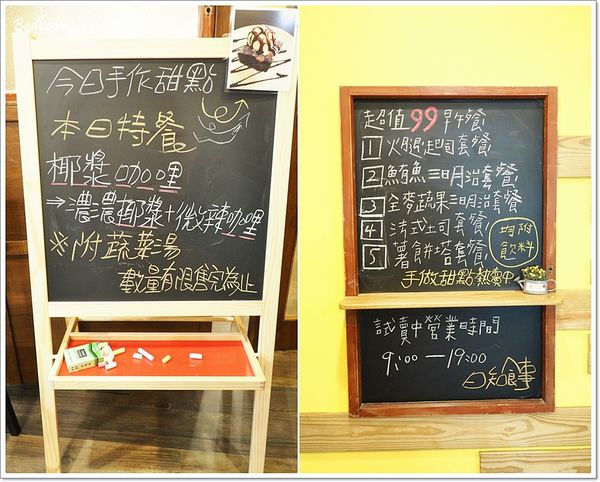 今日手作甜點
本日特餐
椰漿咖哩
→濃濃椰漿+微辣咖哩
※附蔬菜湯
數量有限售完為止
超值99早午餐
1 火腿起司套餐
2 鮪魚三明治套餐
3 全麥蔬果三明治套餐
4 法式土司套餐
5 薯餅塔套餐
均附飲料
手做甜點熱賣中
試賣中營業時間
9:00—19:00
日知食事